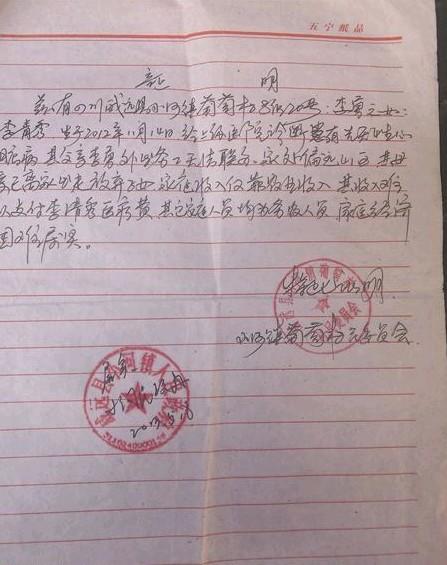 五宁纸品
证 明
兹有四川威远县小河镇葡萄村8组20号:李勇之女:
李清秀 生于2012年11月14日 经上级医院诊断患有先天性心
脏病 其父李勇外出务工无法联系 家处偏远山区 其母
亲已离家出走放弃了她 家庭收入仅靠农业收入 其收入难
以支付李清秀医疗费 其它家庭人员均为务农人员 家庭经济
困难属实。
特此证明
小河镇葡萄村委员会
属实
威远县小河镇人民政府